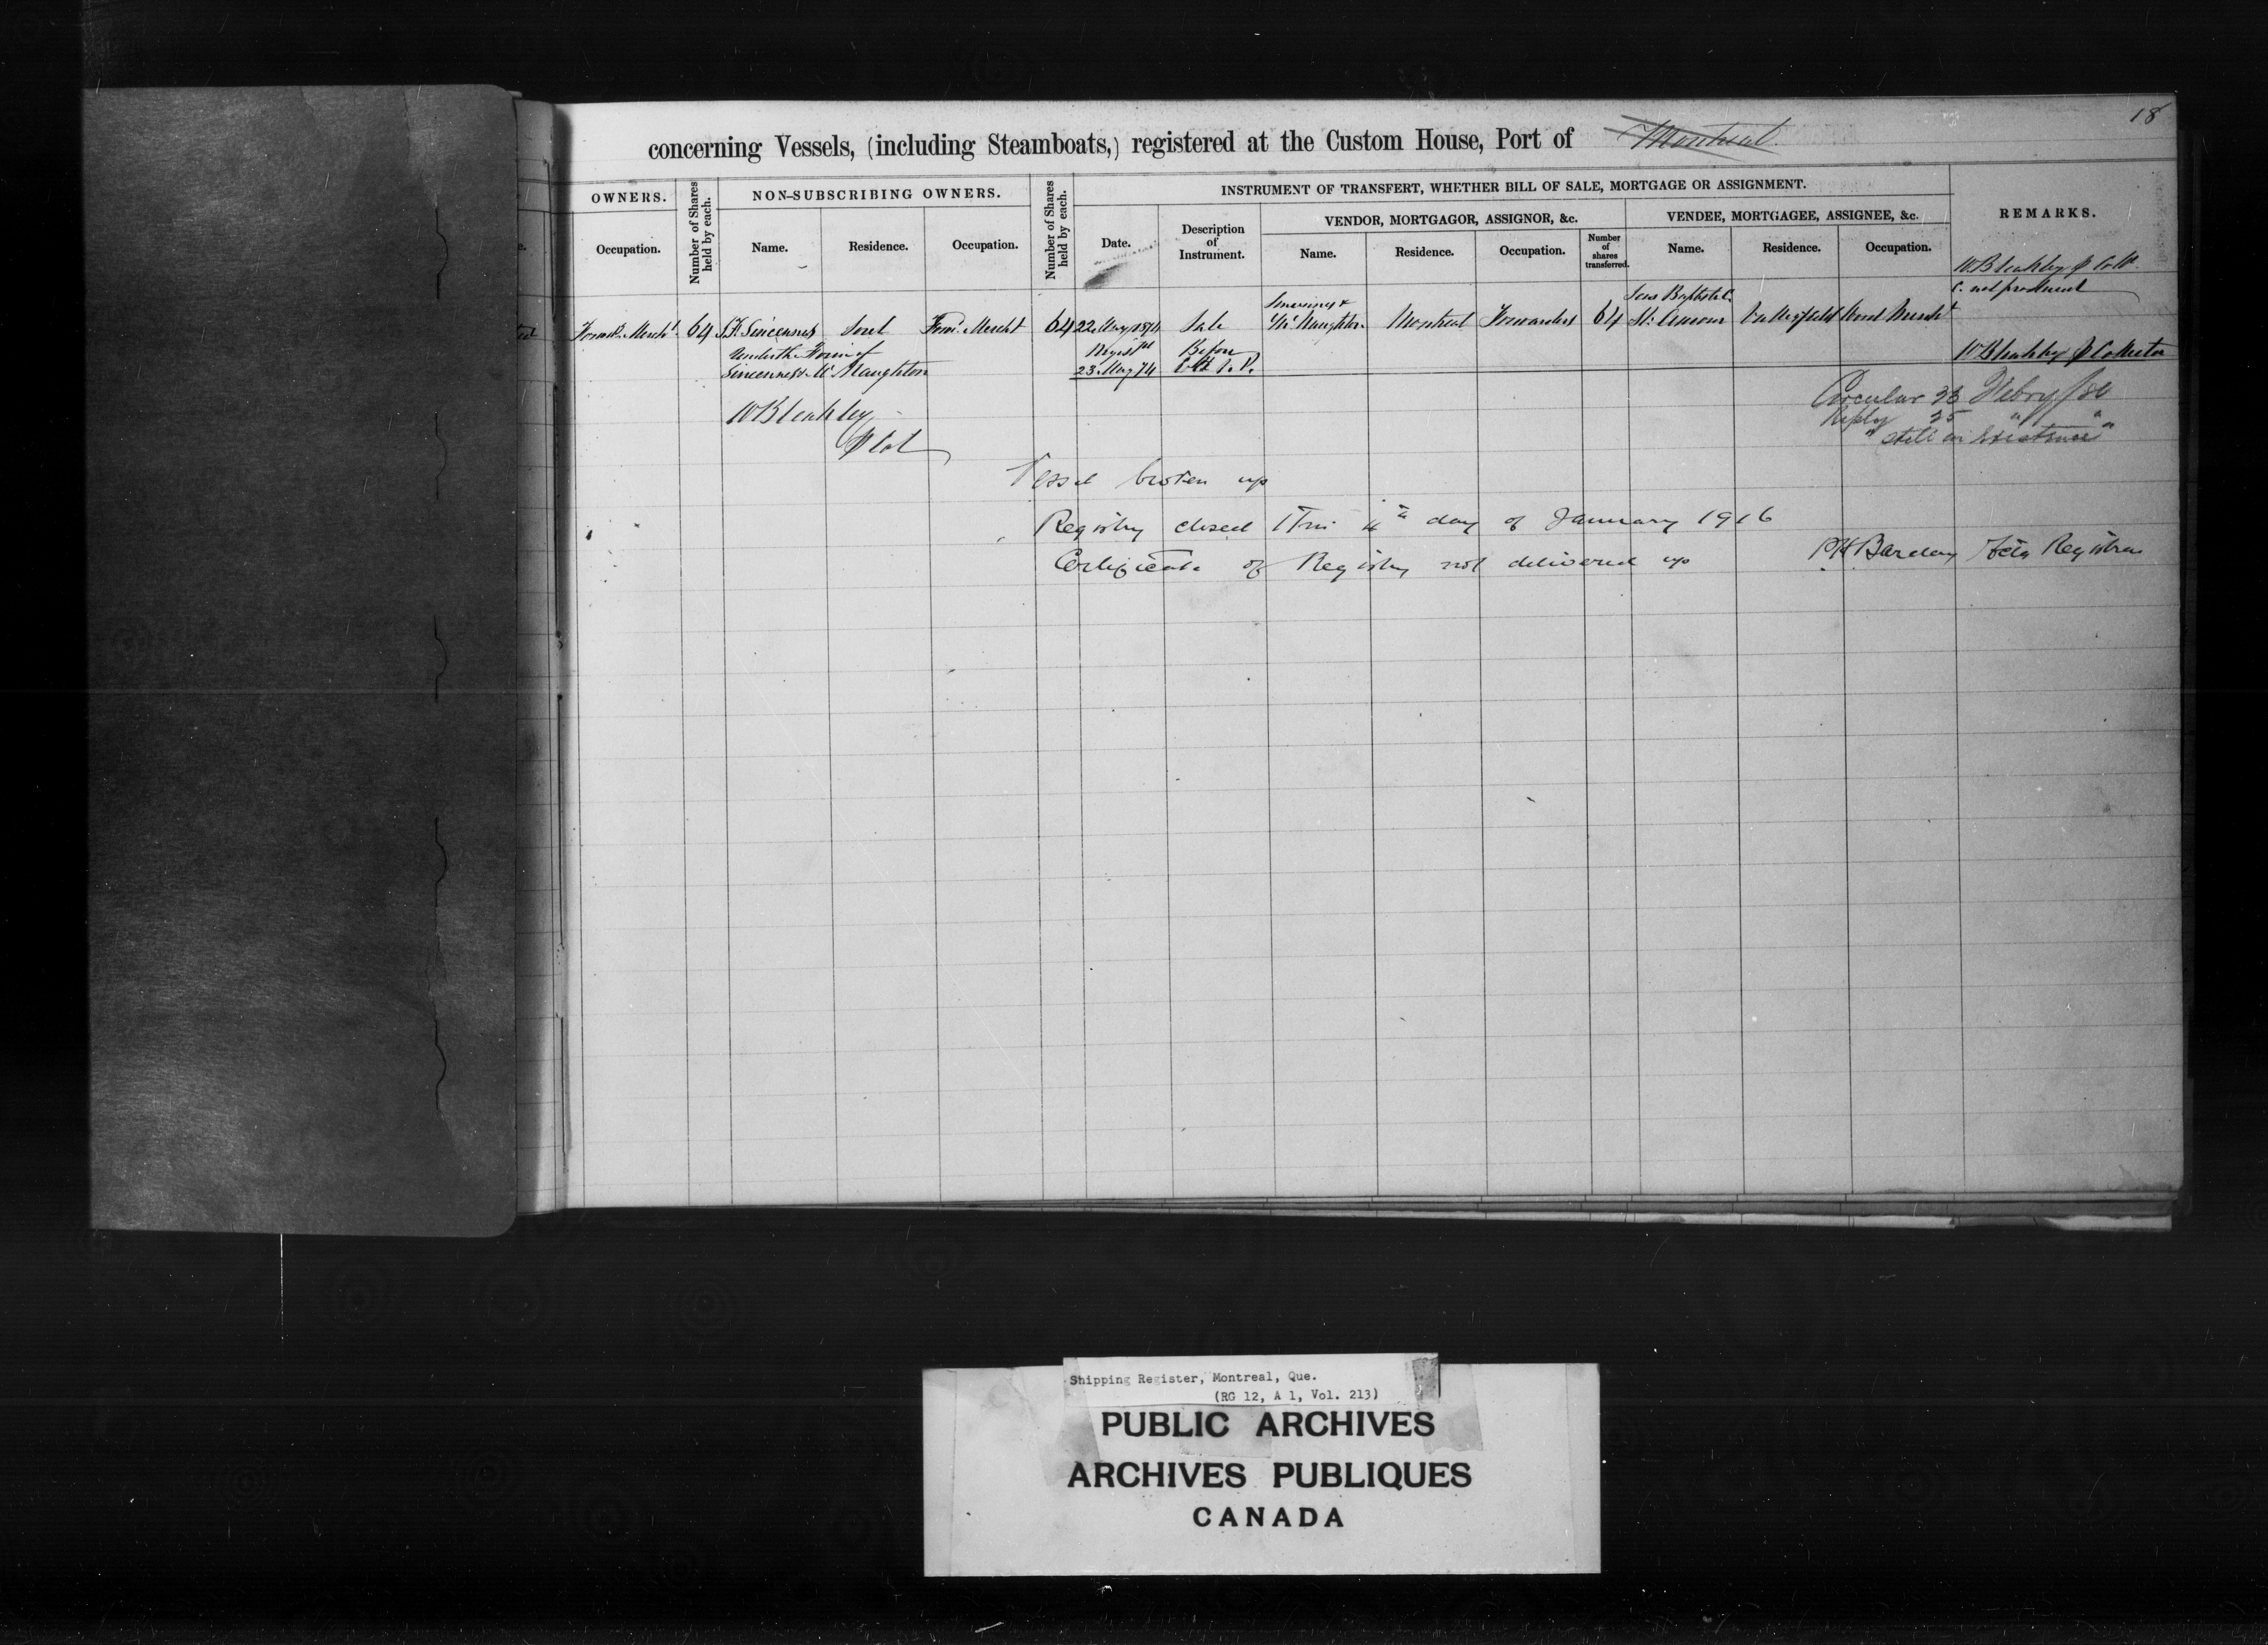 18
concerning Vessels, (including Steamboats,) registered at the Custom House, Port of Montreal.
OWNERS.
Number of Shares held by each.
NON-SUBSCRIBING OWNERS.
Number of Shares held by each.
INSTRUMENT OF TRANSFERT, WHETHER BILL OF SALE, MORTGAGE OR ASSIGNMENT.
REMARKS.
VENDOR, MORTGAGOR, ASSIGNOR, &c.
VENDEE, MORTGAGEE, ASSIGNEE, &c.
Occupation.
Name.
Residence.
Occupation.
Date.
Description of Instrument.
Name.
Residence.
Occupation.
Number of shares transferred.
Name.
Residence.
Occupation.
W Bleakley
Merch^t 64 Sincennes Sorel Merch^t 64 22 May 1874 Sale McNaughton Montreal Forwarders 64 St. Amour
Under the Firm of
Sincennes & McNaughton
23 May 74
Before
W Bleakley Collector
W Bleakley
Circular 23 Febry /84
Reply 25 " "
"still in existence"
Vessel broken up
Registry closed This 4th day of January 1916
Certificate of Registry not delivered up
Barclay Registrar
Shipping Register, Montreal, Que.
(RG 12, A 1, Vol. 213)
PUBLIC ARCHIVES
ARCHIVES PUBLIQUES
CANADA